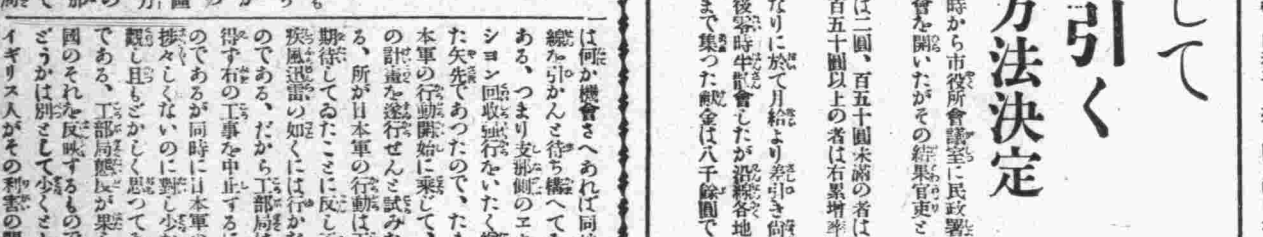 して
引く
方法決定
時から市役所會議室に民政署
會を開いたがその結果官吏と
は二圓、百五十圓未滿の者は
百五十圓以上の者は右累增率
なりに於て月給より差引き尙
後零時半散會したが沿線各地
まで集つた献金は八千餘圓で
は何か機會さへあれば同
線を引かんと待ち構へて
ある、つまり支那側のエ
シヨン回收強行をいたく
た矢先であつたので、た
本軍の行動開始に乘じて、
の計畫を遂行せんと試み
る、所が日本軍の行動は
期待してゐたことに反し
疾風迅雷の如くには行か
のである、だから工部局
得ず右の工事を中止する
のであるが同時に日本軍
捗々しくないのに對し少
觀し且もどかしく思つて
である、工部局態反が果
國のそれを反映するもの
どうかは別として少くと
イギリス人がその利害の